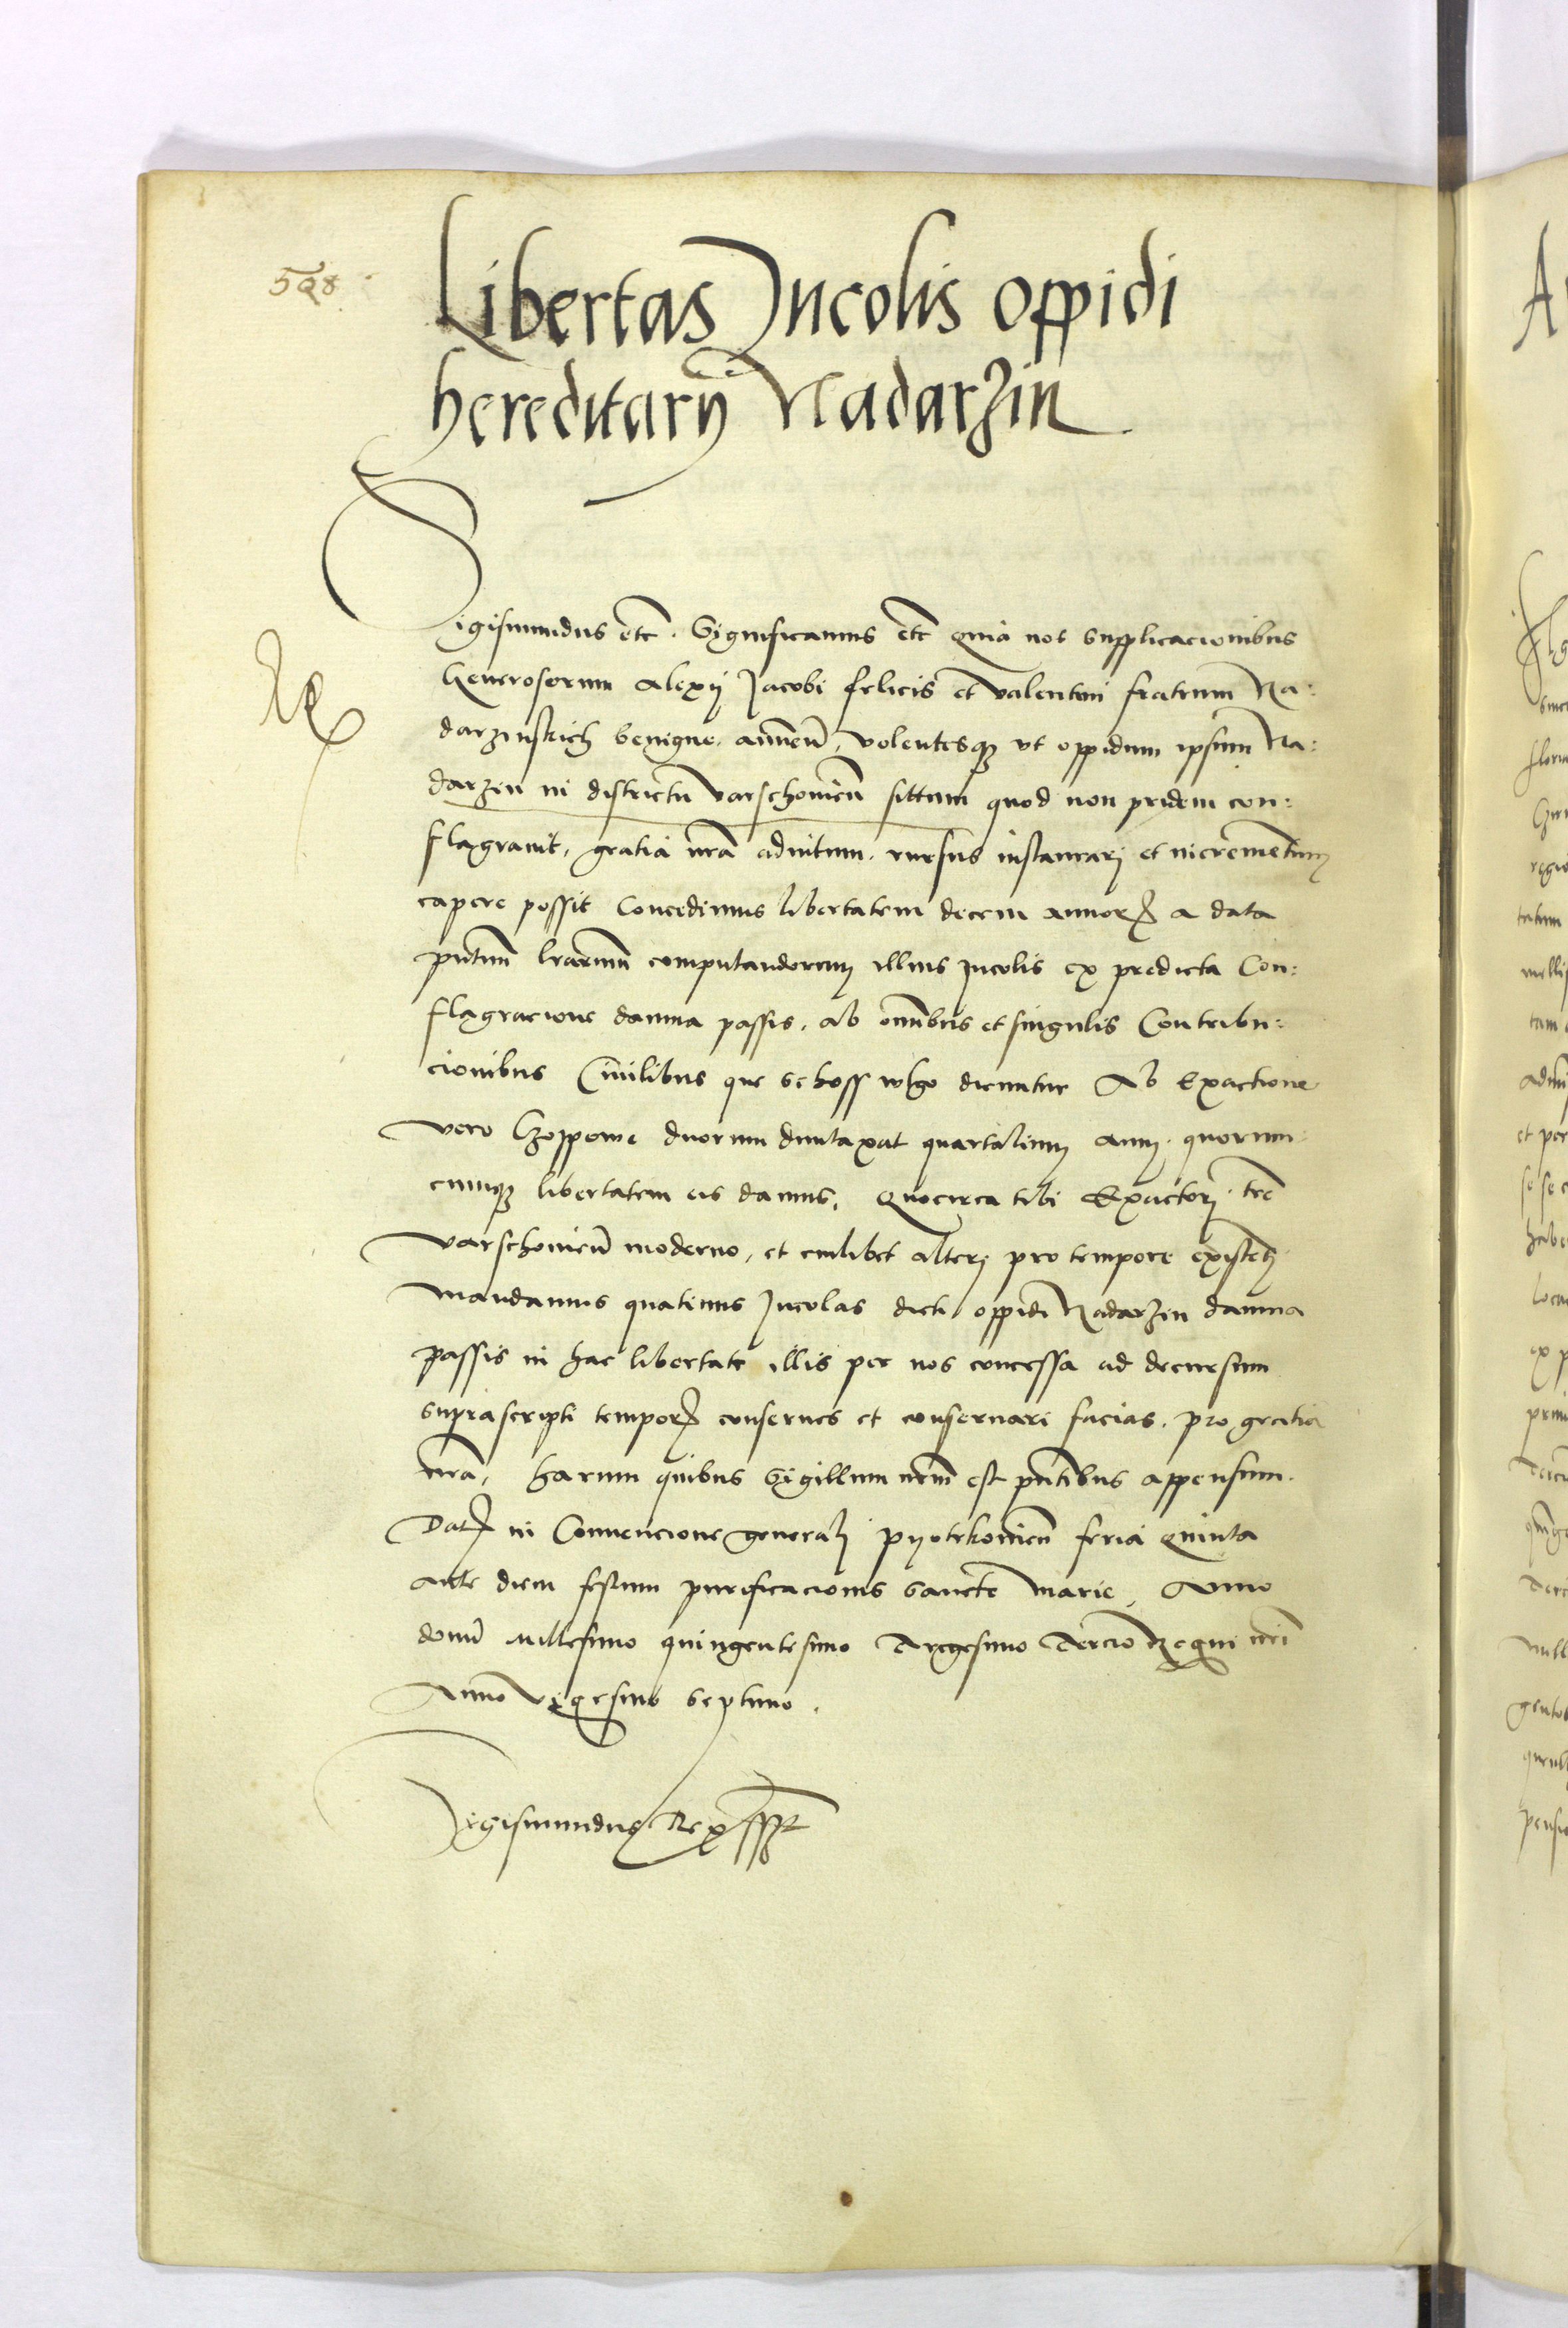 528
Libertas Incolis oppidi
hereditarij Nadarzin
Sigismundus etc. Significamus etc quia nos supplicacionibus
Generosorum Alexij Jacobi felicis et Valentini fratrum Na:
darzinskich benigne annuen̄, volentesq3 vt oppidum ipsum Na:
darzin in districtu varschovien̄ sittum quod non pridem con:
flagravit, gratia nr̄a aduitum rursus instaurarj et incrementum
capere possit Concedimus libertatem decem annoꝝ a data
pn̄tium lr̄arum computandorum illius Incolis ex predicta Con:
flagracione damna passis, ab om̄ibus et singulis Contribu:
cionibus Ciuilibus que schoss wlgo dicuntur Ab Exactione
vero Czoppowe duorum duntaxat quartalium annj quorum:
cumq3 libertatem eis damus, Quocirca tibi Exactorj tr̄e
varschovien̄ moderno, et cuilibet alterj pro tempore existen̄tj
mandamus quatinus Incolas dicti oppidi Nadarzin damna
passis in hac libertate illis per nos concessa ad decursum
suprascripti temporꝭ conserues et conseruari facias, pro gratia
nr̄a, harum quibus Sigillum nr̄m est pn̄tibus appensum.
Datꝭ in Convencione generalj pyotrkovien̄ feria Quinta
ante diem festum purificacionis Sancte Marie, Anno
domī Millesimo quingentesimo Trigesimo Tercio Regni nr̄i
Anno vigesimo Septimo.
Sigismundus Rex sspt